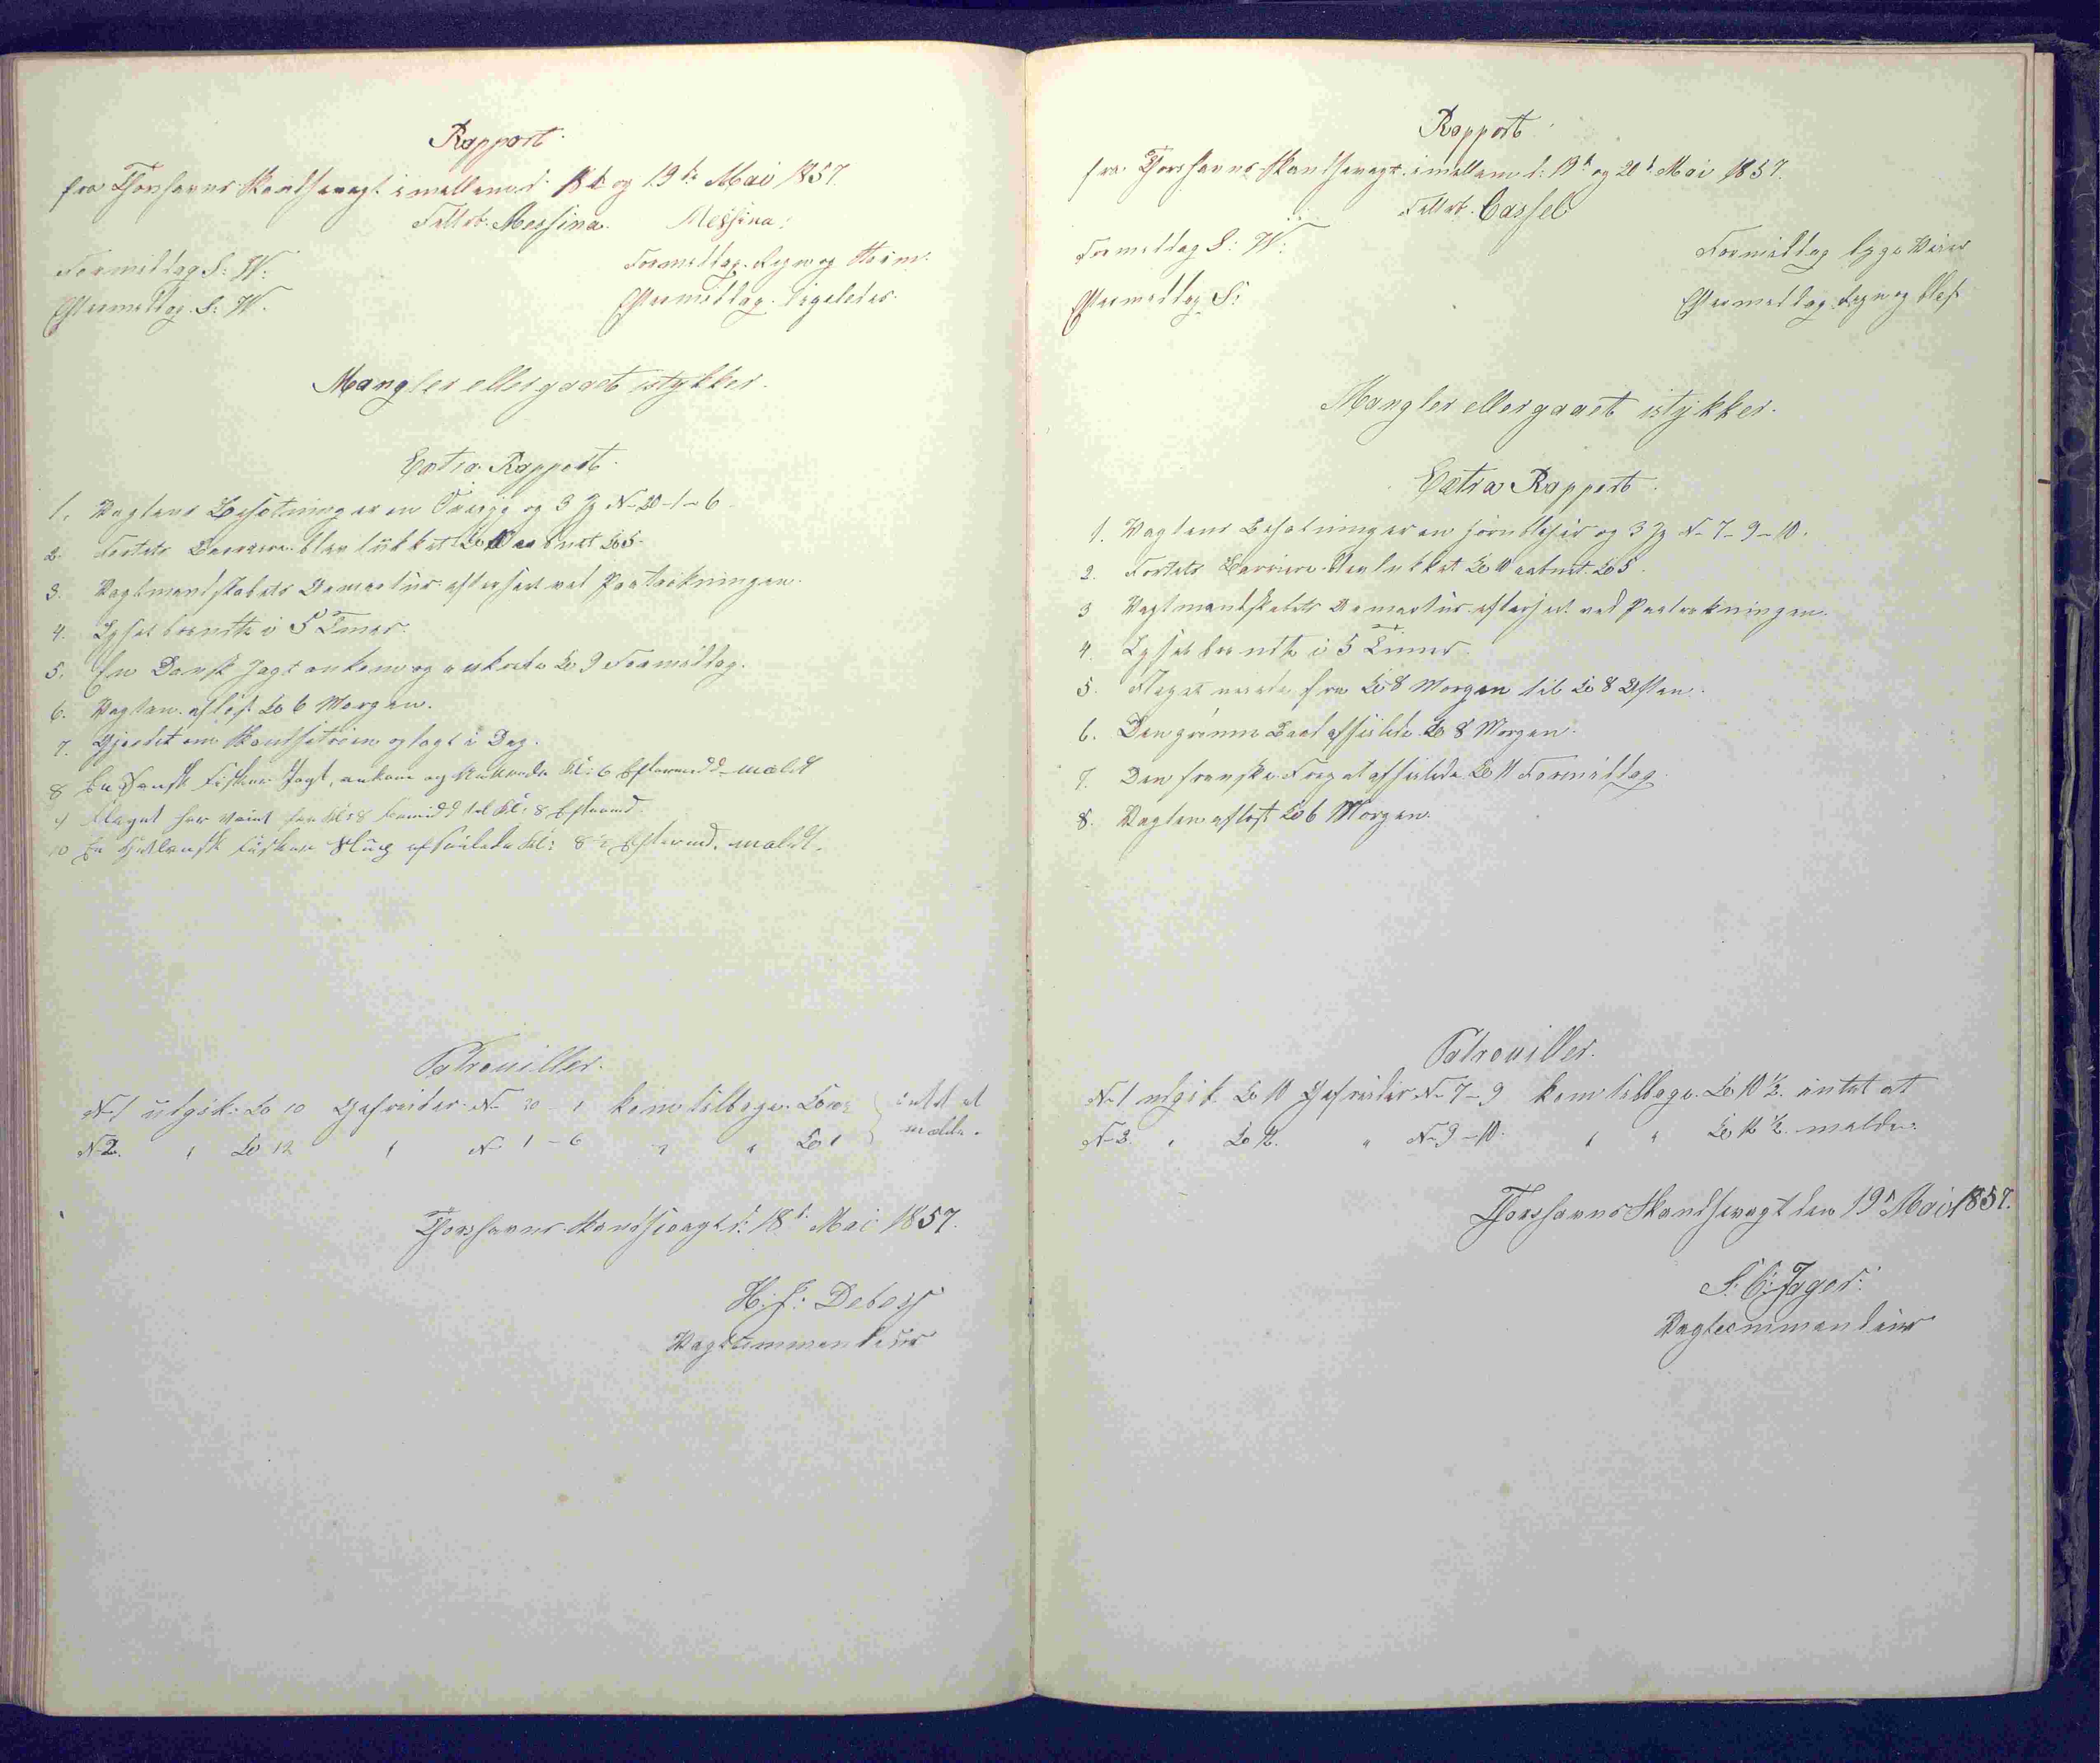 Rapport
fra Thorshavns Skandsevagt imellem d: 18d og 19de Mai 1857.
Feltrb. Messina. Messina.
Formiddag S: W: Formiddag. Regn og
Eftermiddag. S: W. Eftermiddag. ligeledes.
Mangler eller gaaet istykker.
Extra Rapport.
1. Vagtens Besætning er en og 3 Jg N- 20-1-6.
2. Fortets Barriere blev lükket Kl aabnet Kl 5.
3. Vagtmandskabets Armatür efterseet ved Paatrækningen.
4. Lyset brændte i 5 Timer.
5. En Dansk Jagt ankom og ankrede Kl 9 Formiddag.
6. Vagten afløst Kl 6 Morgen.
7. Gjerdet om Skandsetrøen oplagt i Dag.
8 En Dansk Fisker Jagt, ankom og Ankrede Kl: 6 Eftermidd. meldt
9 Flaget har vaiet fra Kl: 8 Formidd til Kl: 8 Efterm.
10 En Hjetlansk Fisker Slup afseilede Kl: 8½ Efterm. meldt.
Patrouiller.
N-1 udgik: Kl 10 Gefreider N- 20 - 1 kom tilbage. Kl intet at
N-2. " Kl 12 " N- 1-6 " " Kl 1 melde.
Thorshavns Skandsevagt d: 18d. Mai 1857.
H: J: Debess
Vagtcommandeur
Rapport
fra Thorshavns Skandsevagt imellem d: 19d og 20d Mai 1857.
Feltrb. Cassel
Formiddag S: W: Formiddag bygeveir
Eftermiddag S: Eftermiddag Regn og blæst
Mangler eller gaaet istykker.
Extra Rapport.
1. Vagtens Besætning er en Hornblæser og 3 Jg N- 7-9-10.
2. Fortets Barriere blev lukket Kl 11 aabnet Kl 5.
3 Vagtmandskabets Armatür efterseet ved Paatrækningen.
4. Lyset brændte i 5 Timer.
5. Flaget vaiede fra Kl 8 Morgen til Kl 8 Aften.
6. Den grønne Baad afseilede Kl 8 Morgen.
7. Den franske Fregat afseilede Kl 11 Formiddag.
8. Vagten afløst Kl 6 Morgen.
Patrouiller.
N-1 udgik Kl 10 Gefreider N- 7-9 kom tilbage Kl 10½ intet at
N-2. " Kl 12. " N- 9-10. " " Kl 12½ melde.
Thorshavns Skandsevagt den 19d Mai 1857.
S: C: Jager:
Vagtcommandeur